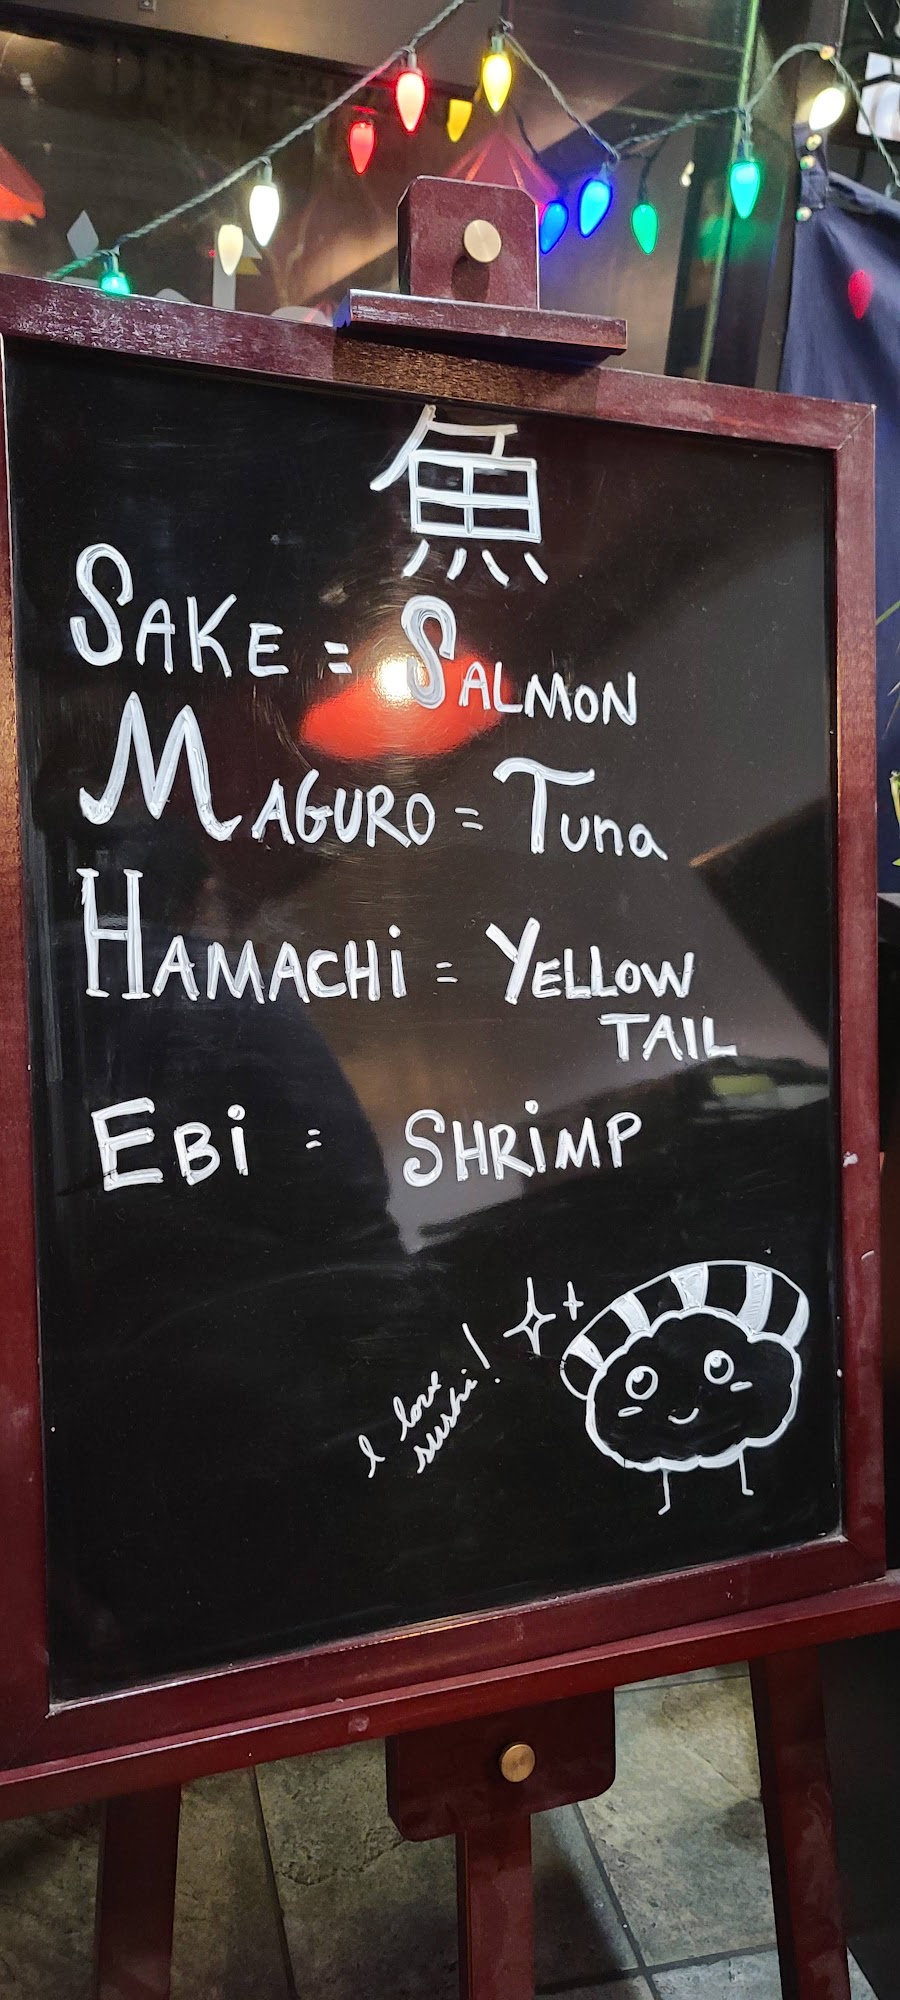 魚
SAKE = SALMON
MAGURO = Tuna
HAMACHi = YELLOW
TAIL
EBi = SHRiMP
I love
sushi!